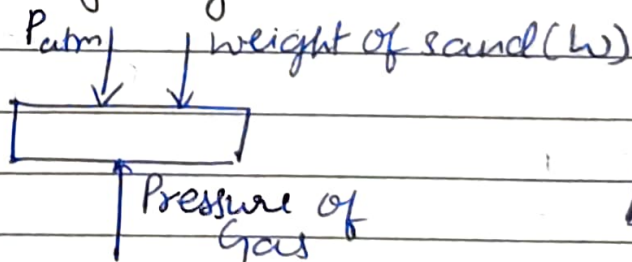 Patm weight of sand (W)
Pressure of
Gas